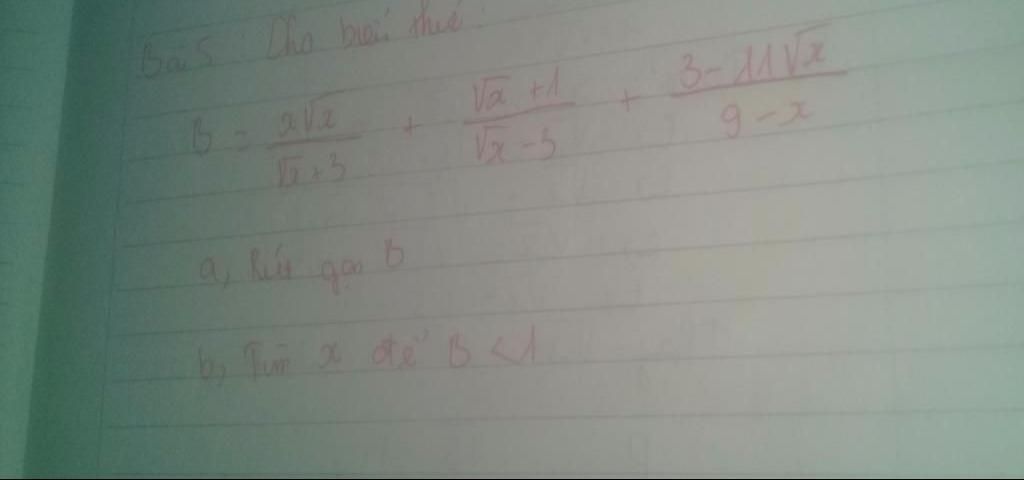 Bài 5: Cho biểu thức:
B = x√x / √x+3 + √x+1 / √x-3 + 3-11√x / 9-x
a, Rút gọn B
b, Tìm x để B < 1